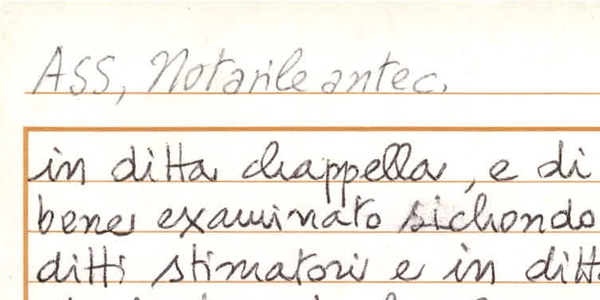 ASS, Notarile antec.
in ditta chappella, e di
bene examinato sichondo
ditti stimatori e in ditt